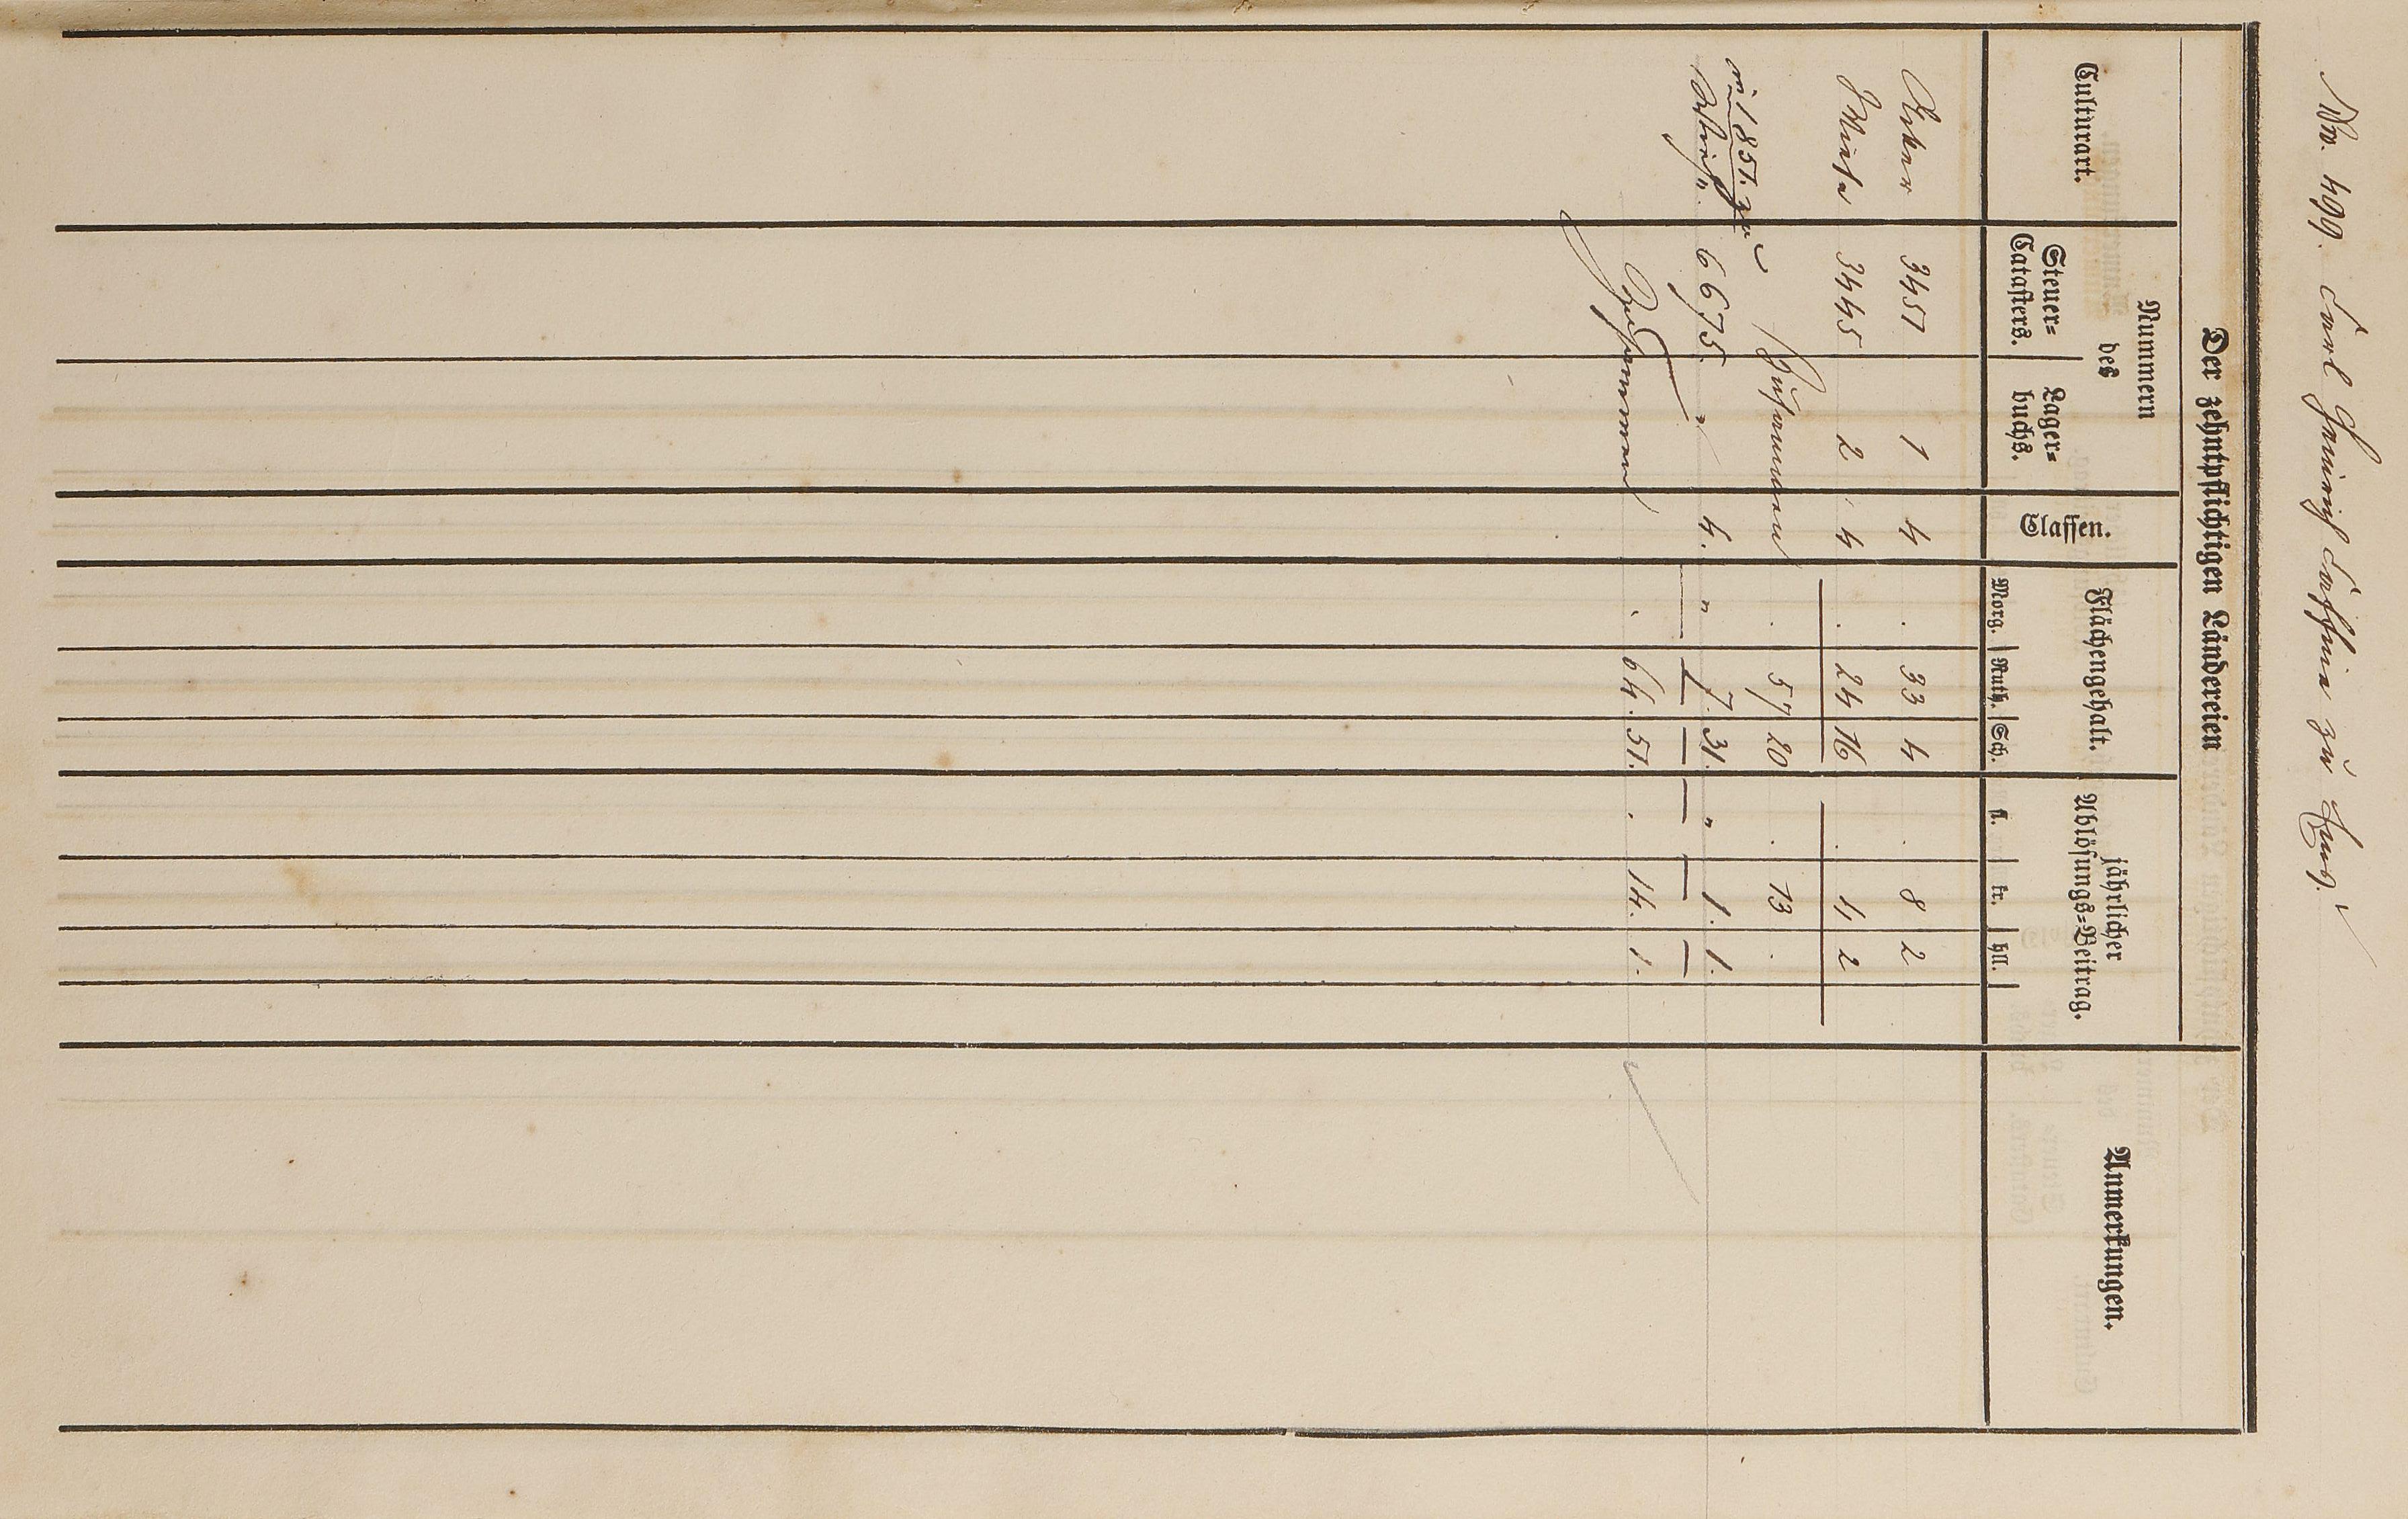 No. 499. Carl Heinrich zu
Der zehntpflichtigen Ländereien
Nummern des jährlicher
Culturart. Steuer= Catasters. Lager= buchs. Classen. Flächengehalt. Ablösungs=Beitrag. Anmerkungen.
Morg. Ruth. Sch. fl. kr. hll.
Acker 3451 1 4 . 33 4 . 8 2
Wiese 3445 2 4 . 24 16 . 4 2
Zusammen . 57 20 . 13 .
1851. zu
6675. " 4. " 7. 31. " 1. 1.
Zusammen . 64. 51. . 14. 1.